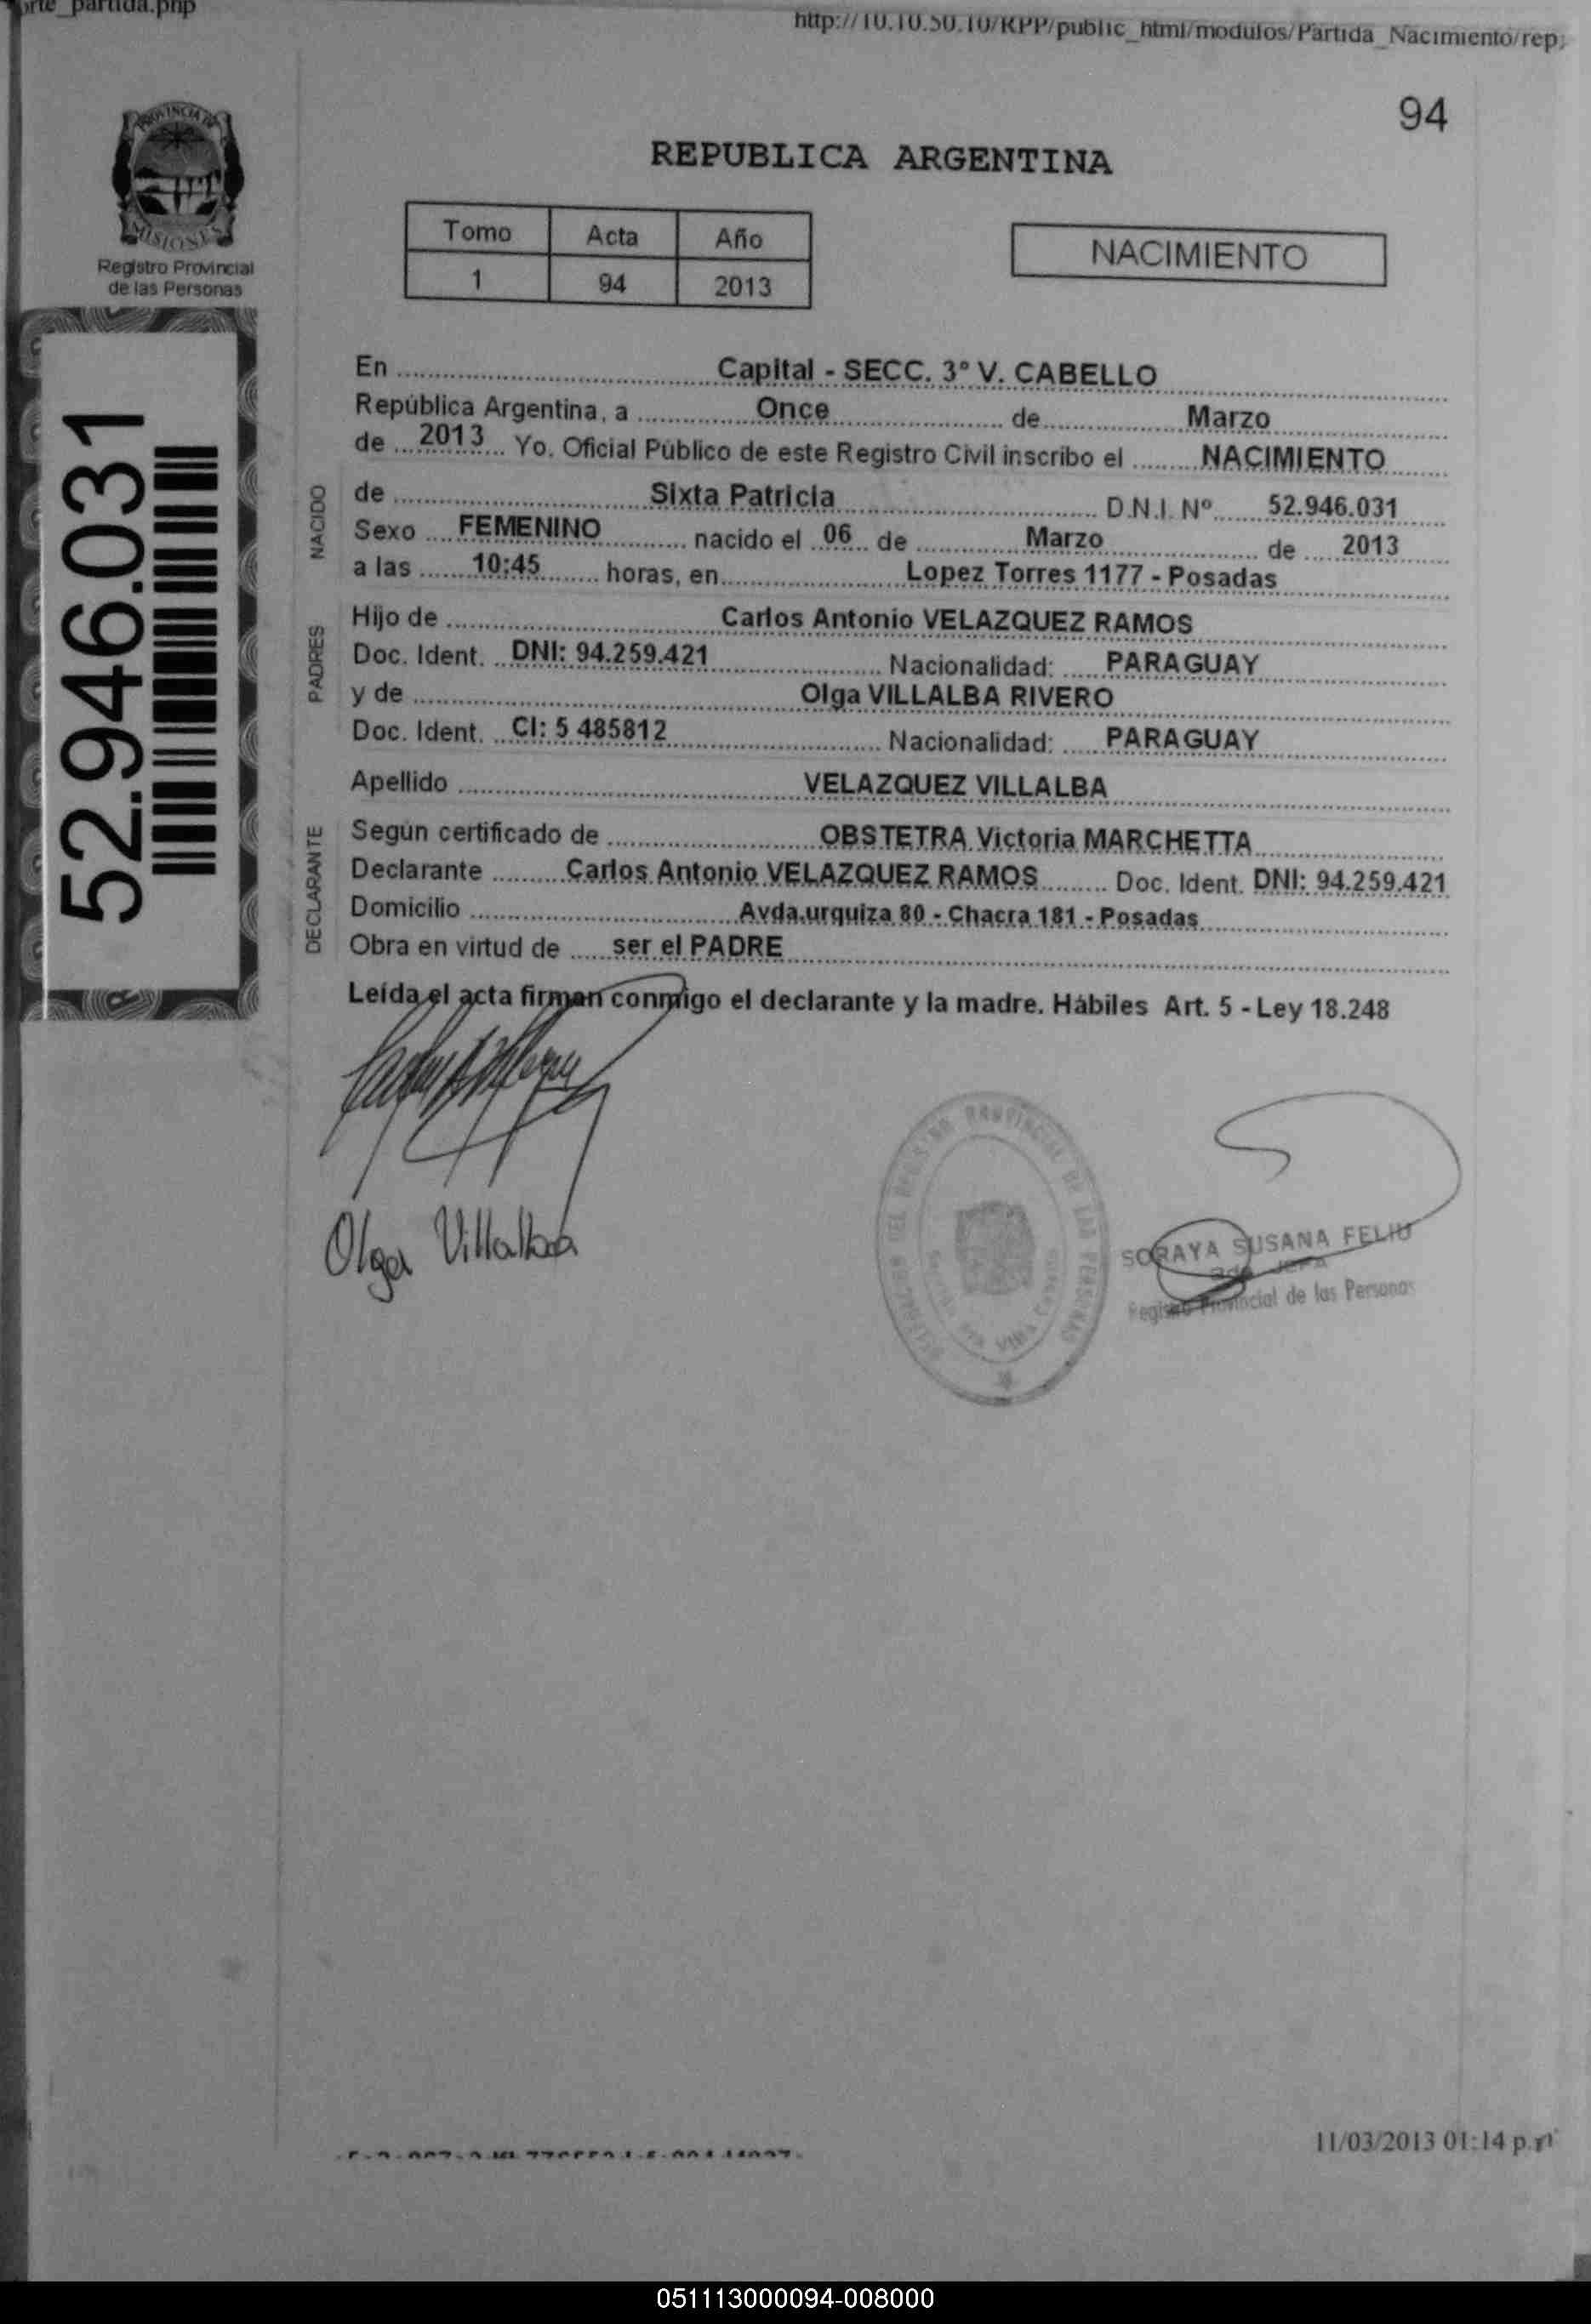 orte_partida.php
http://10.10.50.10/RPP/public_html/modulos/Partida_Nacimiento/rep
94
PROVINCIA DE
MISIONES
Registro Provincial
de las Personas
REPUBLICA ARGENTINA
Tomo Acta Año
1 94 2013
NACIMIENTO
52.946.031
En Capital - SECC. 3° V. CABELLO
República Argentina, a Once de Marzo
de 2013 Yo. Oficial Público de este Registro Civil inscribo el NACIMIENTO
NACIDO
de Sixta Patricia D.N.I. Nº 52.946.031
Sexo FEMENINO nacido el 06 de Marzo de 2013
a las 10:45 horas, en Lopez Torres 1177 - Posadas
PADRES
Hijo de Carlos Antonio VELAZQUEZ RAMOS
Doc. Ident. DNI: 94.259.421 Nacionalidad: PARAGUAY
y de Olga VILLALBA RIVERO
Doc. Ident. CI: 5 485812 Nacionalidad: PARAGUAY
Apellido VELAZQUEZ VILLALBA
DECLARANTE
Según certificado de OBSTETRA Victoria MARCHETTA
Declarante Carlos Antonio VELAZQUEZ RAMOS Doc. Ident. DNI: 94.259.421
Domicilio Avda.urquiza 80 - Chacra 181 - Posadas
Obra en virtud de ser el PADRE
Leída el acta firman conmigo el declarante y la madre. Hábiles Art. 5 - Ley 18.248
Olga Villalba
PROVINCIAL DE LAS PERSONAS
SORAYA SUSANA FELIU
JEFA
Registro Provincial de las Personas
11/03/2013 01:14 p.m
051113000094-008000